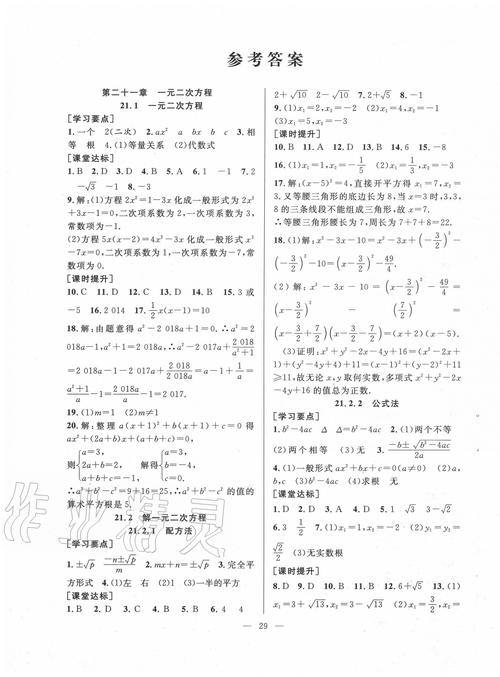 参考答案
第二十一章 一元二次方程
21.1 一元二次方程
[学习要点]
1.一个 2(二次) 2.ax² a bx b c 3.相
等 根 4.(1)等量关系 (2)代数式
[课堂达标]
1.B 2.D 3.A 4.B 5.C 6.1 -1 7.2
-√3 -1 8.-2
9.解:(1)方程2x²=1-3x化成一般形式为2x²
+3x-1=0,二次项系数为2,一次项系数为3,
常数项为-1.
(2)方程5x(x-2)=4x²-3x化成一般形式为x²
-7x=0,二次项系数为1,一次项系数为-7,常数
项为0.
[课时提升]
10.C 11.D 12.C 13.D 14.B 15.3或
-5 16.2 014 17.1/2x(x-1)=28
18.解:由题意得a²-2 018a+1=0,∴a²=
2 018a-1,a²+1=2 018a,∴a²-2 017a+
2 018/(a²+1)=2 018a-1-2 017a+2 018/2 018a=a-1+1/a=
(a²+1)/a-1=2 018a/a-1=2 018-1=2 017.
19.(1)m=1 (2)m≠1
20.解:整理a(x+1)²+b(x+1)+c=0得
ax²+(2a+b)x+(a+b+c)=0,
则{a=3, 2a+b=2, a+b+c=0, 解得{a=3, b=-4, c=1.
∴a²+b²-c²=9+16-1=24,∴a²+b²-c²的值的
算术平方根是
21.2 解一元二次方程
21.2.1 配方法
[学习要点]
1.±√p (-n±√p)/m 2.mx+n=±√p 3.完全平
方形式 4.(1)左 右 (2)1 (3)一半的平方
[课堂达标]
1.D 2.D 3.A 4.D 5.B 6.4 4 7.
2+√10 2-√10 8.-1
9.(1)x₁=1,x₂=
(3)x₁=
[课时提升]
10.B 11.A 12.D 13.C 14.B 15.-8
16.(1)x₁=1,x₂=-1/5 (2)x₁=
17.解:(x-5)²=4,直接开平方得x₁=7,x₂=
3.又等腰三角形的底边长为8,当x=3时,3,3,
8的三条线段不能组成三角形,故x=7.
∴等腰三角形的周长为7+7+8=22.
18.(1)解:x²-3x-10=x²-3x+
(-3/2)²-(-3/2)²-10=(x-3/2)²-49/4.
(2)解:x²-3x-10=(x-3/2)²-(7/2)²=
(x-3/2+7/2)(x-3/2-7/2)=(x+2)(x-5).
(3)证明:x²+y²-2x-4y+16=(x²-2x+
1)+(y²-4y+4)+11=(x-1)²+(y-2)²+11
≥11,故无论x,y取何实数,多项式x²+y²-2x
-4y+16的值总为正数.
21.2.2 公式法
[学习要点]
1.b²-4ac Δ Δ=b²-4ac 2.(1)两个不等
(2)两个相等 (3)无 3.(-b±√(b²-4ac))/2a
4.(1)一般形式ax²+bx+c=0(a≠0) (2)a,
b,c b²-4ac (3)求根 无
[课堂达标]
1.B 2.D 3.D 4.C 5.D
6.3 7.(1)x₁=2,x₂=-1 (2)y₁=y₂=
√2/2 (3)无实数根
[课时提升]
8.D 9.D 10.A 11.B 12.6+√5 13.(1)
x₁=3+√13,x₂=3-√13 (2)x₁=
29
作业精灵